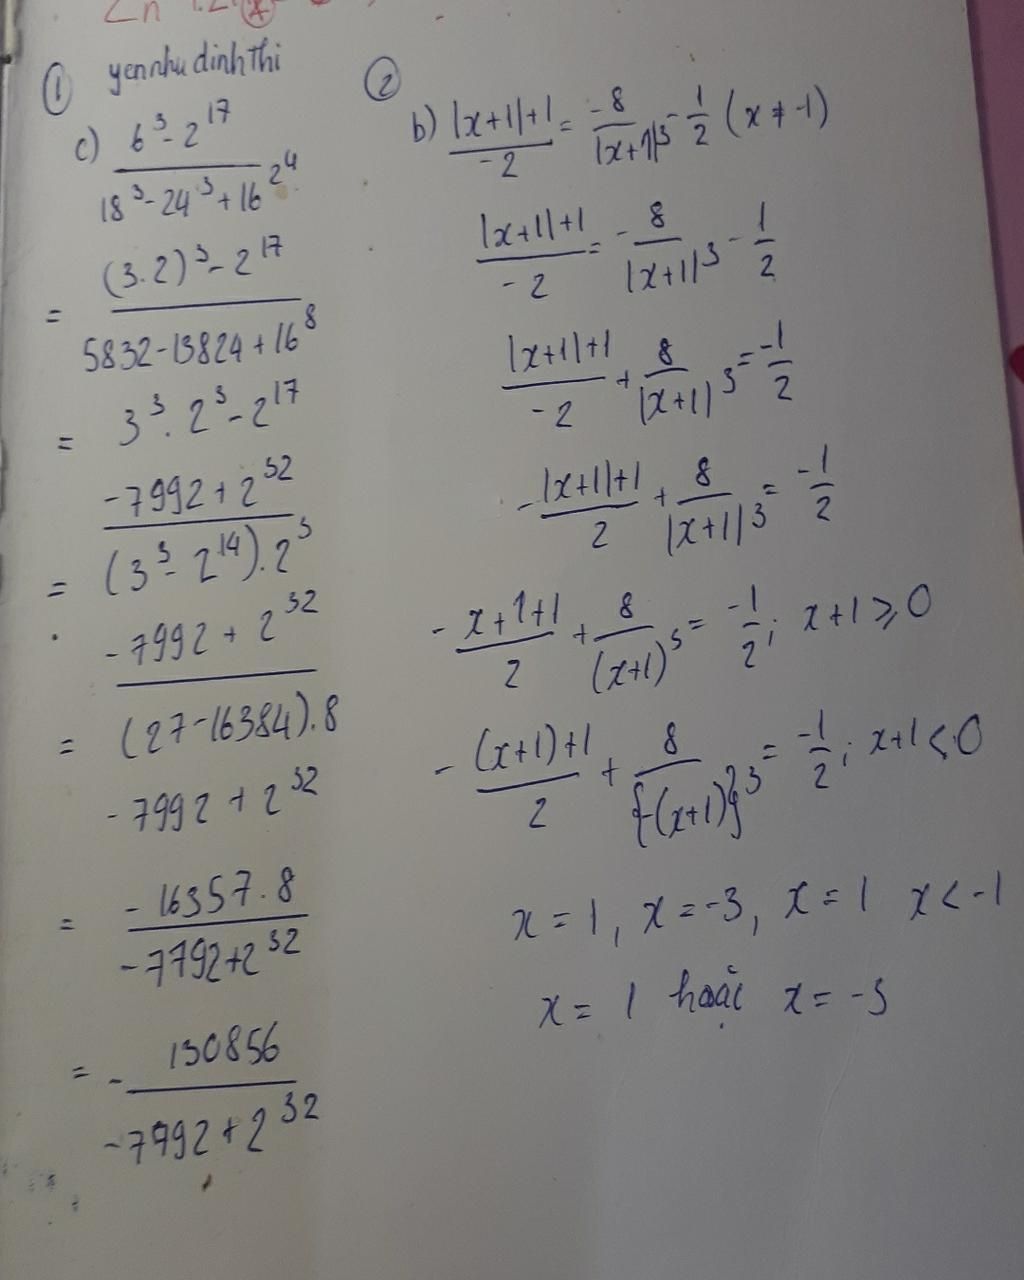 Zn
① yennhudinhThi
c) 6³-2¹⁷
18³-24³+16 2⁴
= (3.2)³-2¹⁷
5832-13824+16⁸
= 3³.2³-2¹⁷
-7992+2³²
= (3³-2¹⁴).2³
-7992+2³²
= (27-16384).8
-7992+2³²
= -16357.8
-7792+2³²
= - 130856
-7992+2³²
②
b) |x+1|+1/-2 = -8/|x+1|³ - 1/2 (x ≠ -1)
|x+1|+1/-2 = - 8/|x+1|³ - 1/2
|x+1|+1/-2 + 8/|x+1|³ = -1/2
- |x+1|+1/2 + 8/|x+1|³ = -1/2
- x+1+1/2 + 8/(x+1)³ = -1/2; x+1 ≥ 0
- (x+1)+1/2 + 8/{-(x+1)}³ = -1/2; x+1 < 0
x = 1, x = -3, x = 1 x < -1
x = 1 hoặc x = -3